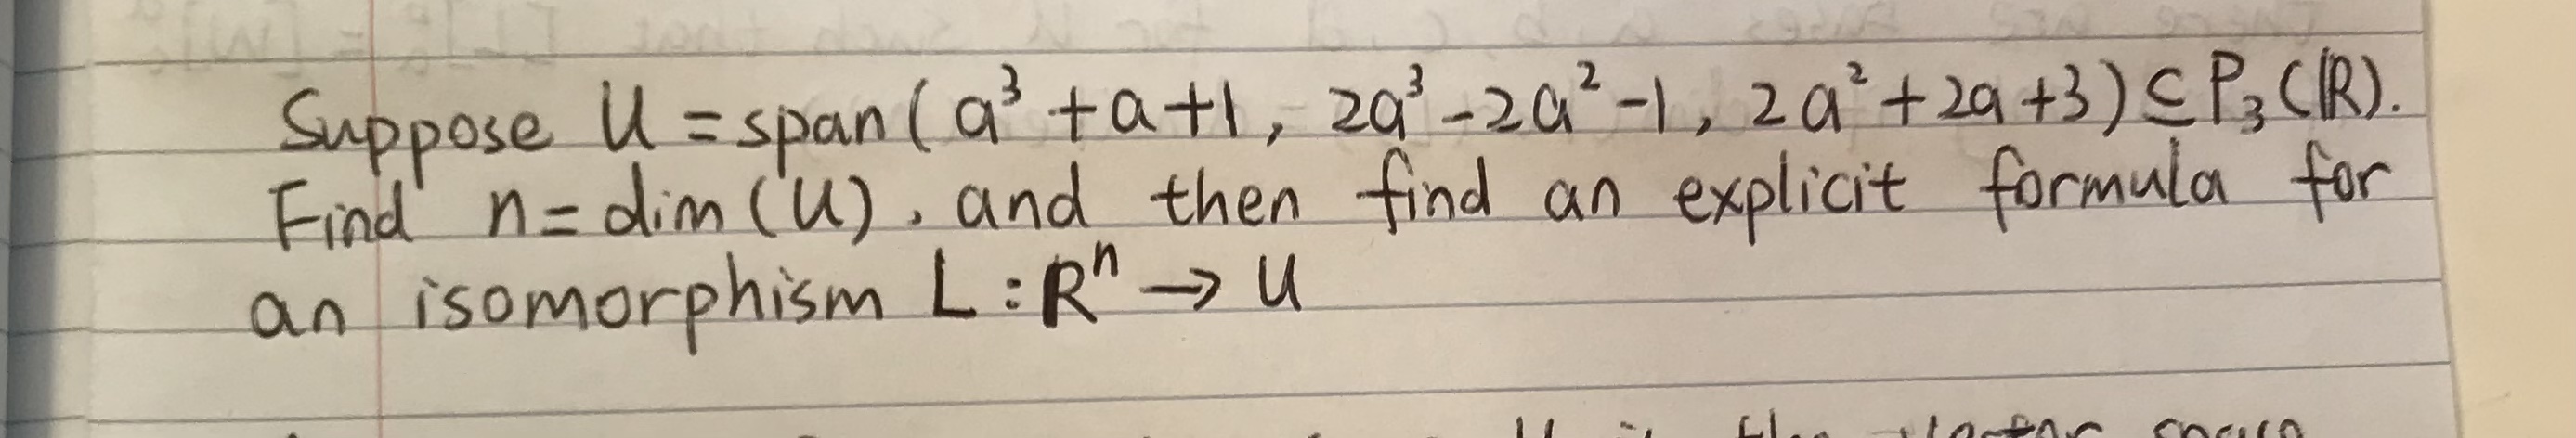 Suppose U = span(a³ + a + 1, 2a³ - 2a² - 1, 2a² + 2a + 3) ⊆ P₃(ℝ).
Find n = dim(U), and then find an explicit formula for
an isomorphism L : Rⁿ → U